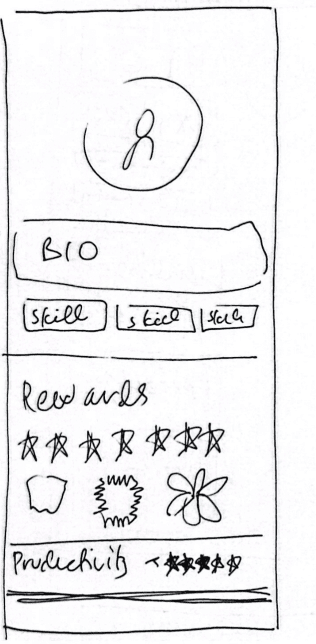 BIO
skill skill skill
Rewards
Productivity